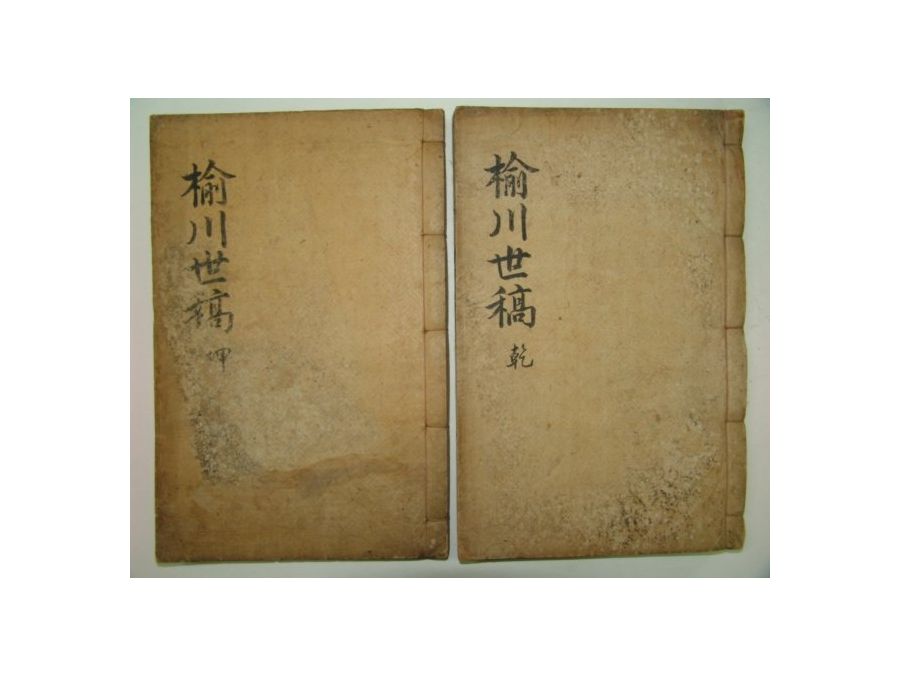 榆川世稿
乾
榆川世稿
坤